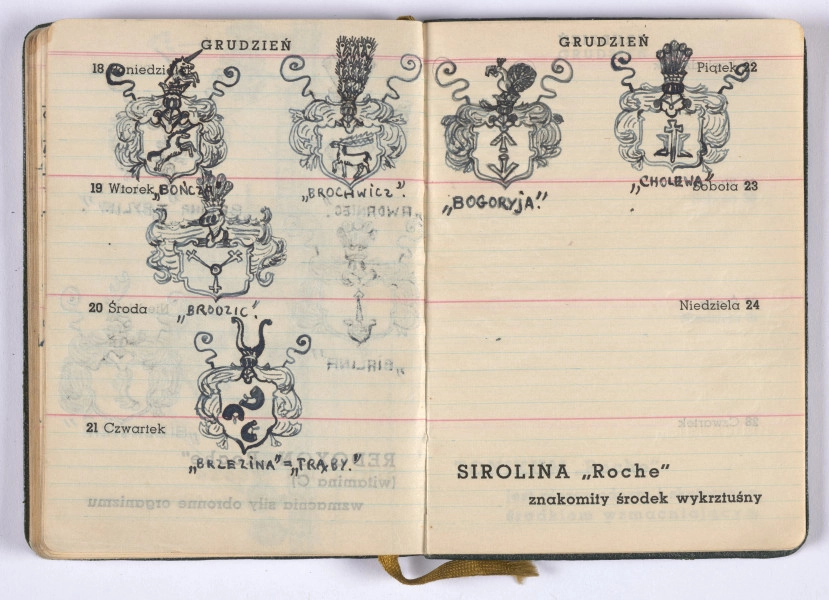 GRUDZIEŃ
18 Poniedziałek
„BOŃCZA”
„BROCHWICZ”.
19 Wtorek
„BRODZIC”.
20 Środa
21 Czwartek
„BRZEZINA” = „TRĄBY.”
GRUDZIEŃ
Piątek 22
„BOGORYJA.”
„CHOLEWA”
Sobota 23
Niedziela 24
SIROLINA „Roche”
znakomity środek wykrztuśny